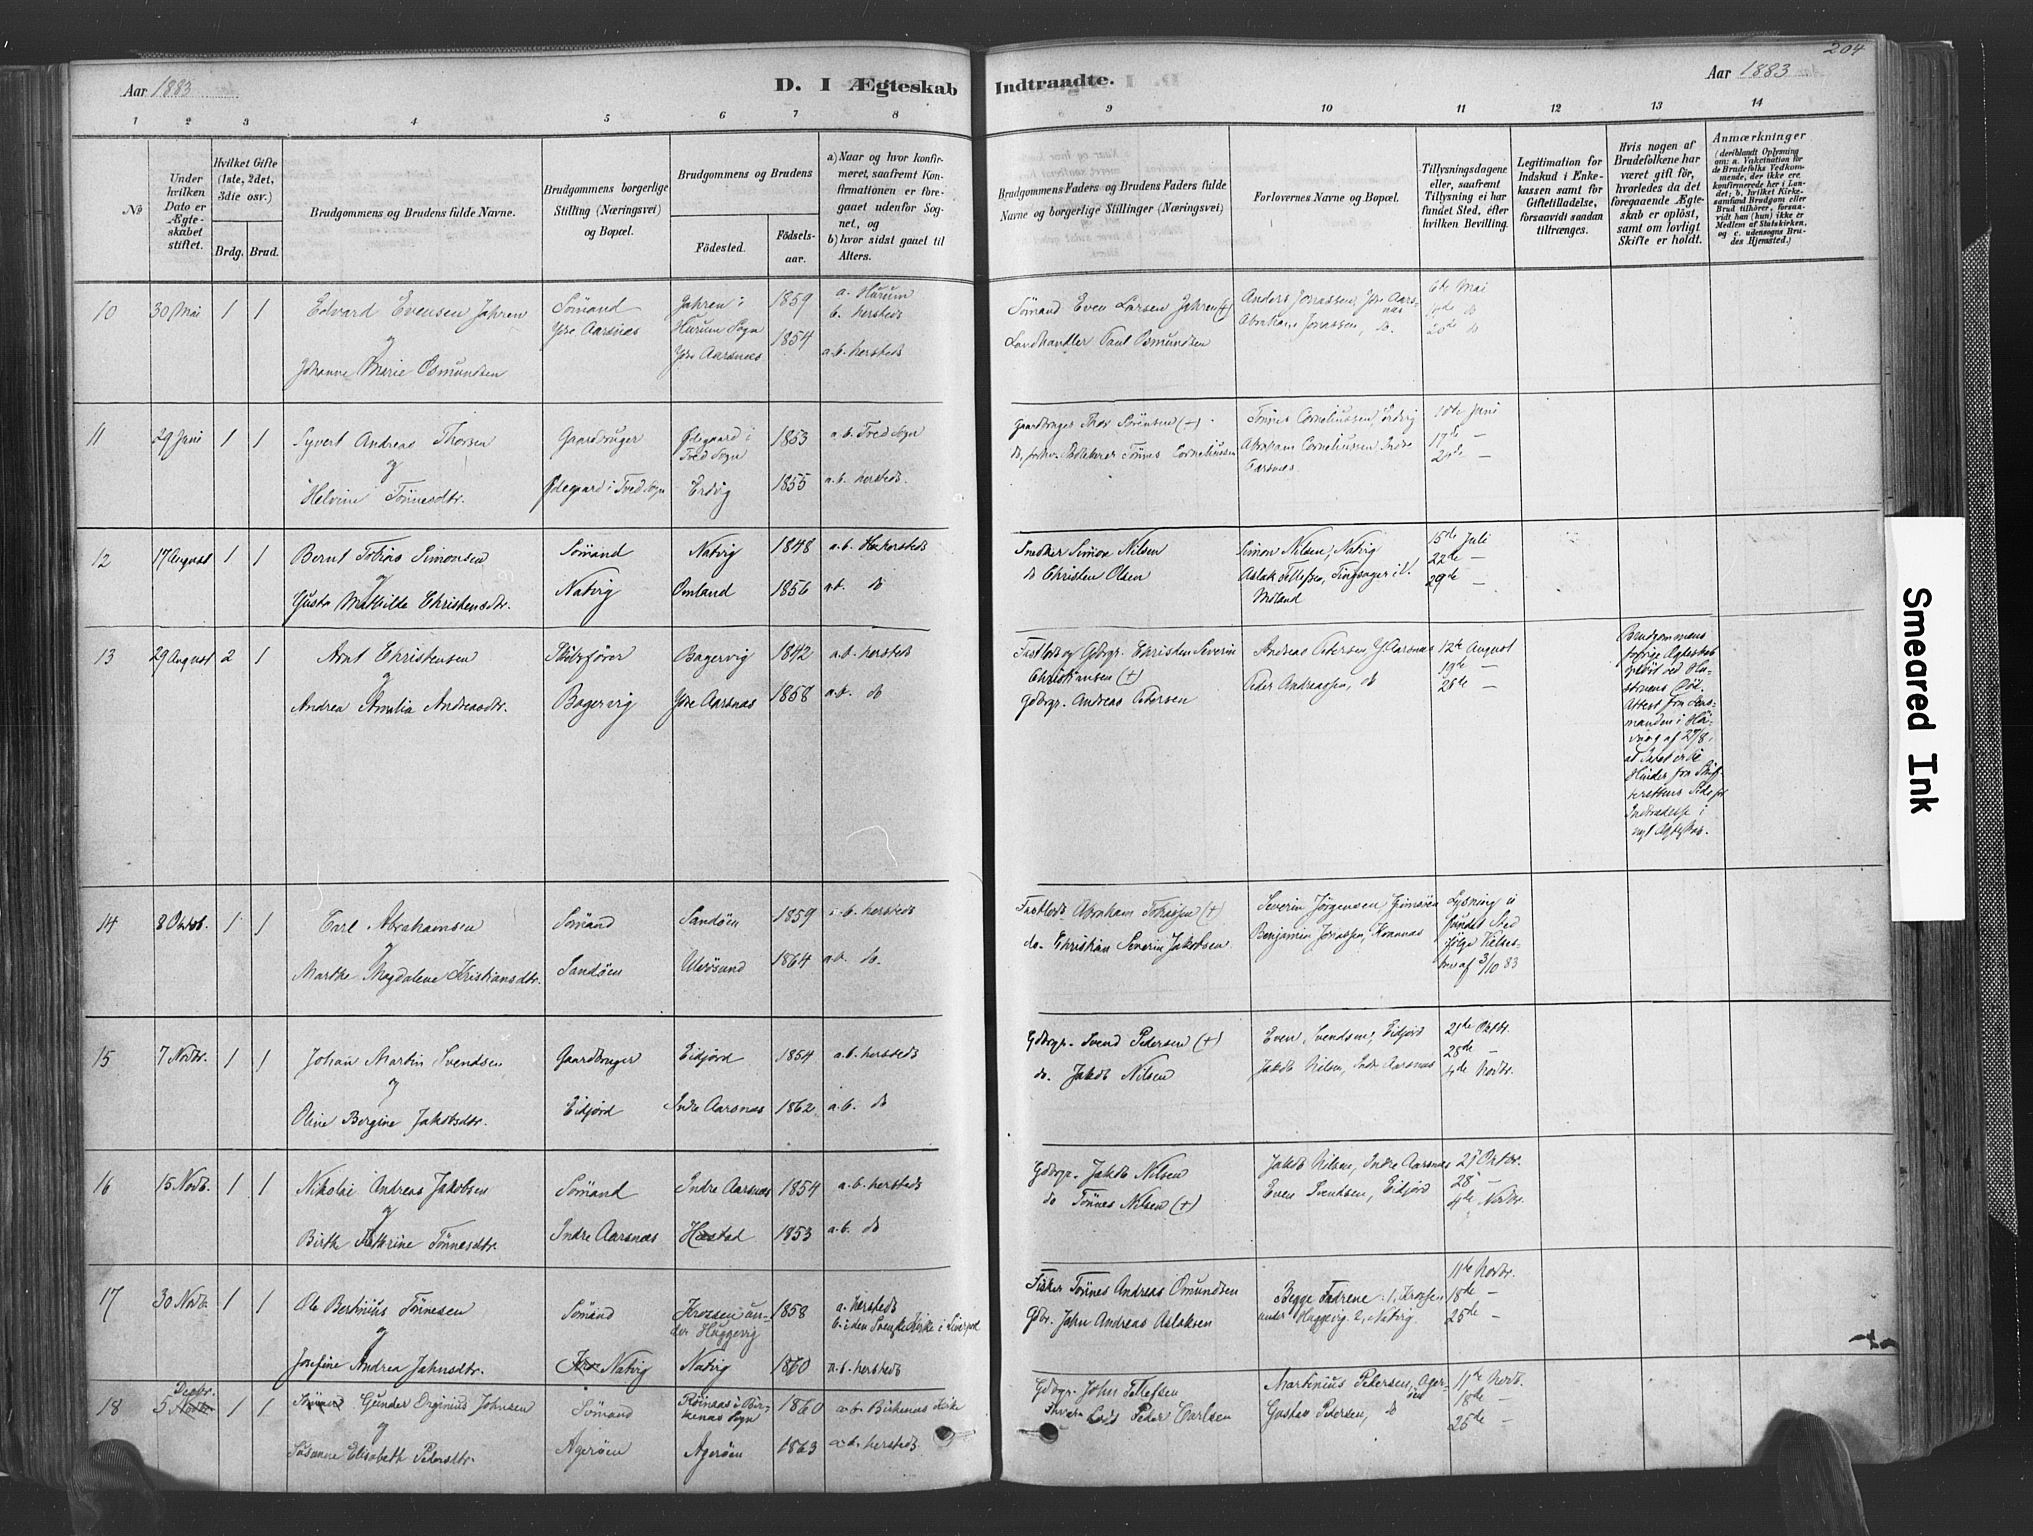 204
Aar 1883
D. I Ægteskab Indtraadte.
Aar 1883
1 2 3 4 5 6 7 8 9 10 11 12 13 14
No
Under hvilken Dato er Ægteskabet stiftet.
Hvilket Gifte (1ste, 2det, 3die osv.)
Brdg. Brud.
Brudgommens og Brudens fulde Navne.
Brudgommens borgerlige Stilling (Næringsvei) og Bopæl.
Brudgommens og Brudens
Födested.
Födselsaar.
a) Naar og hvor Konfirmeret, saafremt Konfirmationen er foregaaet udenfor Sognet, og
b) hvor sidst gaaet til Alters.
Brudgommens Faders og Brudens Faders fulde Navne og borgerlige Stillinger (Næringsvei)
Forlovernes Navne og Bopæl.
Tillysningsdagene eller, saafremt Tillysning ei har fundet Sted, efter hvilken Bevilling.
Legitimation for Indskud i Enkekassen samt for Giftetilladelse, forsaavidt saadan tiltrænges.
Hvis nogen af Brudefolkene har været gift för, hvorledes da det foregaaende Ægteskab er oplöst, samt om lovligt Skifte er holdt.
Anmærkninger
(deriblandt Oplysning om: a. Vakcination for de Brudefolks Vedkommende, der ikke ere konfirmerede her i Landet; b. hvilket Kirkesamfund Brudgom eller Brud tilhörer, forsaavidt han (hun) ikke er Medlem af Statskirken, og c. udensogns Brudes Hjemsted.)
10 30 Mai 1 1 Edvard Evensen Jahren
og
Johanne Marie Osmundsen
Sömand
Ytre Aarsnes
Jahren i Hurum Sogn 1859
Ytre Aarsnes 1854
a. Hurum
b. hersteds
a.b. hersteds
Sömand Even Larsen Jahren (+)
Landhandler Paul Osmundsen
Anders Jonassen, Ytre Aarsnes
Abraham Jonassen, do.
6te Mai
do
20de do
11 29 Juni 1 1 Syvert Andreas Thorsen
og
Helvine Tönnesdtr.
Gaardbruger
Ødegaard i Tved Sogn
Ødegaard i Tved Sogn 1853
Erdvig 1855
a.b. Tved Sogn
a.b. hersteds.
Gaardbruger Thor Sörensen (+)
do, Tönnes Corneliussen
Tönnes Corneliussen, Erdvig
Abraham Corneliussen Indre Aarsnes
10de Juni
17de —
24de —
12 17 August 1 1 Bernt Tobias Simonsen
og
Gusta Mathilde Christensdtr.
Sömand
Natvig
Natvig 1848
Omland 1856
a.b. hersteds
a.b. do
Snedker Simon Nilsen
do Christen Olsen
Simon Nilsen, Natvig
Aslak Tellefsen, Tingsager i V. Moland
15de Juli
22de —
29de —
13 29 August 2 1 Arnt Christensen
og
Andrea Amalia Andreasdtr.
Skibsförer
Bagervig
Bagervig 1842
Ytre Aarsnes 1858
a.b. hersteds
a.b. do
Fastlods og Gdbrgr. Christen Severin
Christiansen (+)
Gdbrgr. Andreas Petersen
Andreas Petersen, Y. Aarsnes
Peder Andreassen, do
12te August
19de —
26de —
Brudgommens forrige Ægteskab oplöst ved Hustruens Död. Attest fra Lensmanden i Hövaag af 27/8, at Intet er til Hinder fra Skifterettens Side for Indtrædelse i nyt Ægteskab.
14 8 Oktob. 1 1 Carl Abrahamsen
og
Marthe Magdalene Kristiansdtr.
Sömand
Sandöen
Sandöen 1859
Ulvösund 1864
a.b. hersteds
a.b. do.
Fastlods Abraham Tobiassen (+)
do. Christian Severin Jakobsen
Severin Jörgensen
Benjamin Jonassen, Kvannes
Lysning ei fundet Sted ifölge Kgbrev af 3/10 83
15 7 Novbr. 1 1 Johan Martin Svendsen
og
Oline Bergine Jakobsdtr.
Gaardbruger
Eidjord
Eidjord 1854
Indre Aarsnes 1862
a.b. hersteds
a.b. do
Gdbrgr. Svend Pedersen (+)
do. Jakob Nilsen
Even Svendsen, Eidjord
Jakob Nilsen, Indre Aarsnes
21de Oktbr.
28de —
4de Novbr.
16 15 Novb. 1 1 Nikolai Andreas Jakobsen
og
Birthe Kathrine Tönnesdtr.
Sömand
Indre Aarsnes
Indre Aarsnes 1854
Hæstad 1853
a.b. hersteds
a.b. do
Gdbrgr. Jakob Nilsen
do Tönnes Nilsen (+)
Jakob Nilsen, Indre Aarsnes
Even Svendsen, Eidjord
21 Oktbr.
28 —
4de Novbr.
17 30 Novb. 1 1 Ole Bertinius Tönnesen
og
Josefine Andrea Jahnsdtr.
Sömand
Natvig
Krossen under Huggevig 1858
Natvig 1860
a. hersteds
b. i den Svenske Kirke i Liverpool
a.b. hersteds
Fisker Tönnes Andreas Omundsen
Gbr. Jahn Andreas Aslaksen
Begge Fædrene: 1, Krossen under Huggevig 2, Natvig.
11te Novbr.
18de —
25de —
18 5 Decbr. 1 1 Gunder Orginius Johnsen
og
Susanne Elisabeth Pedersdtr.
Sömand
Ageröen
Röinaas i Birkenæs Sogn 1860
Ageröen 1863
a.b. Birkenæs Kirke
a.b. hersteds
Gdbrgr. John Tellefsen
Lods Peder Carlsen
Martinius Pedersen, Ageröen
Gustav Pedersen, do
11te Novb.
18de —
25de —
Smeared Ink